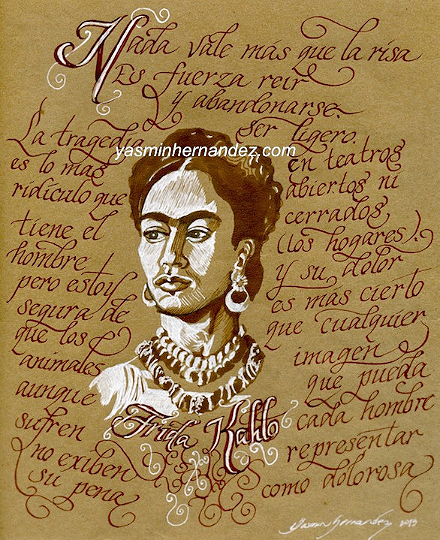 Nada vale más que la risa
Es fuerza reir
y abandonarse.
ser ligero.
La tragedia
es lo mas
ridiculo que
tiene el
hombre
pero estoy
segura de
que los
animales
aunque
sufren
no exiben
su pena
en teatros
abiertos ni
cerrados,
(los hogares).
y su dolor
es mas cierto
que cualquier
imagen
que pueda
cada hombre
representar
como dolorosa
Frida Kahlo
yasminhernandez.com
yasminhernandez.com
Yasmin Hernandez